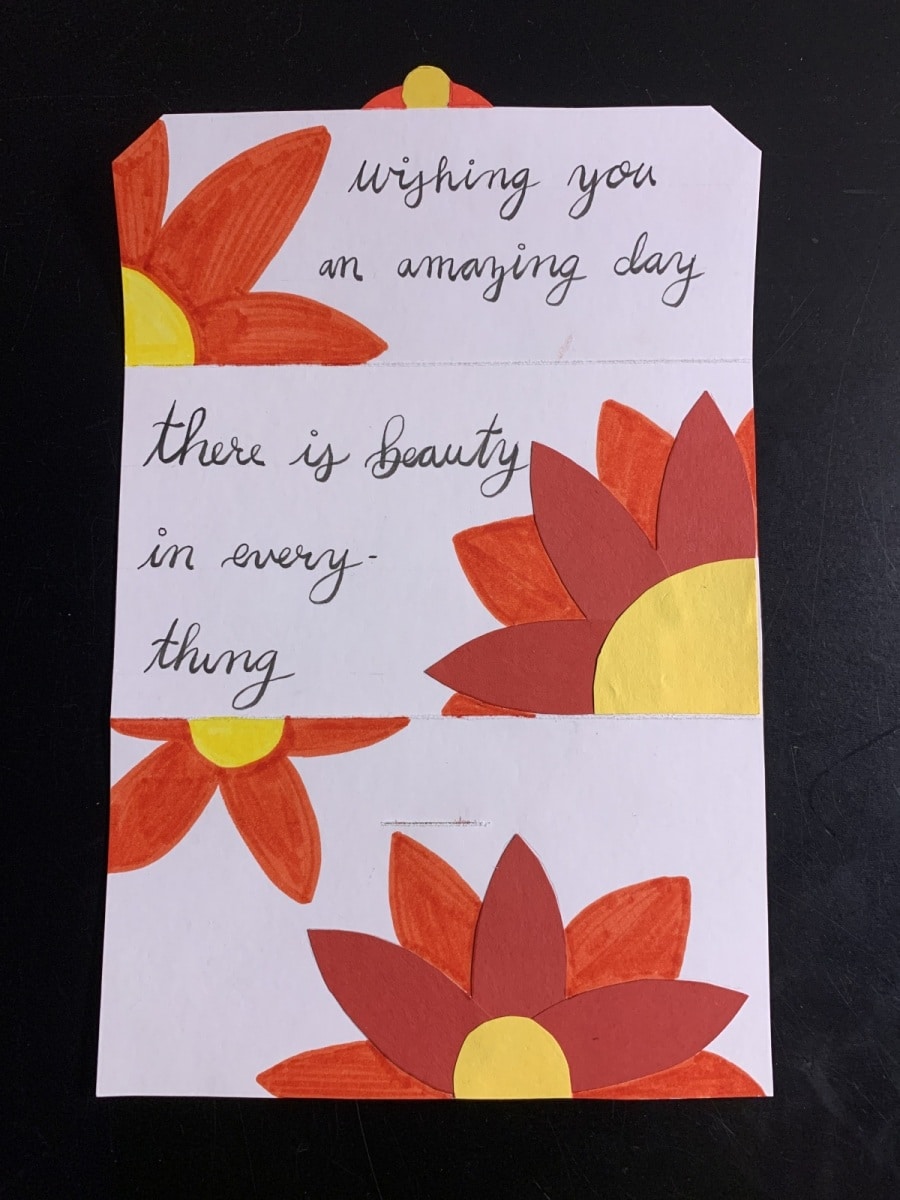 wishing you
an amazing day
there is beauty
in every-
thing